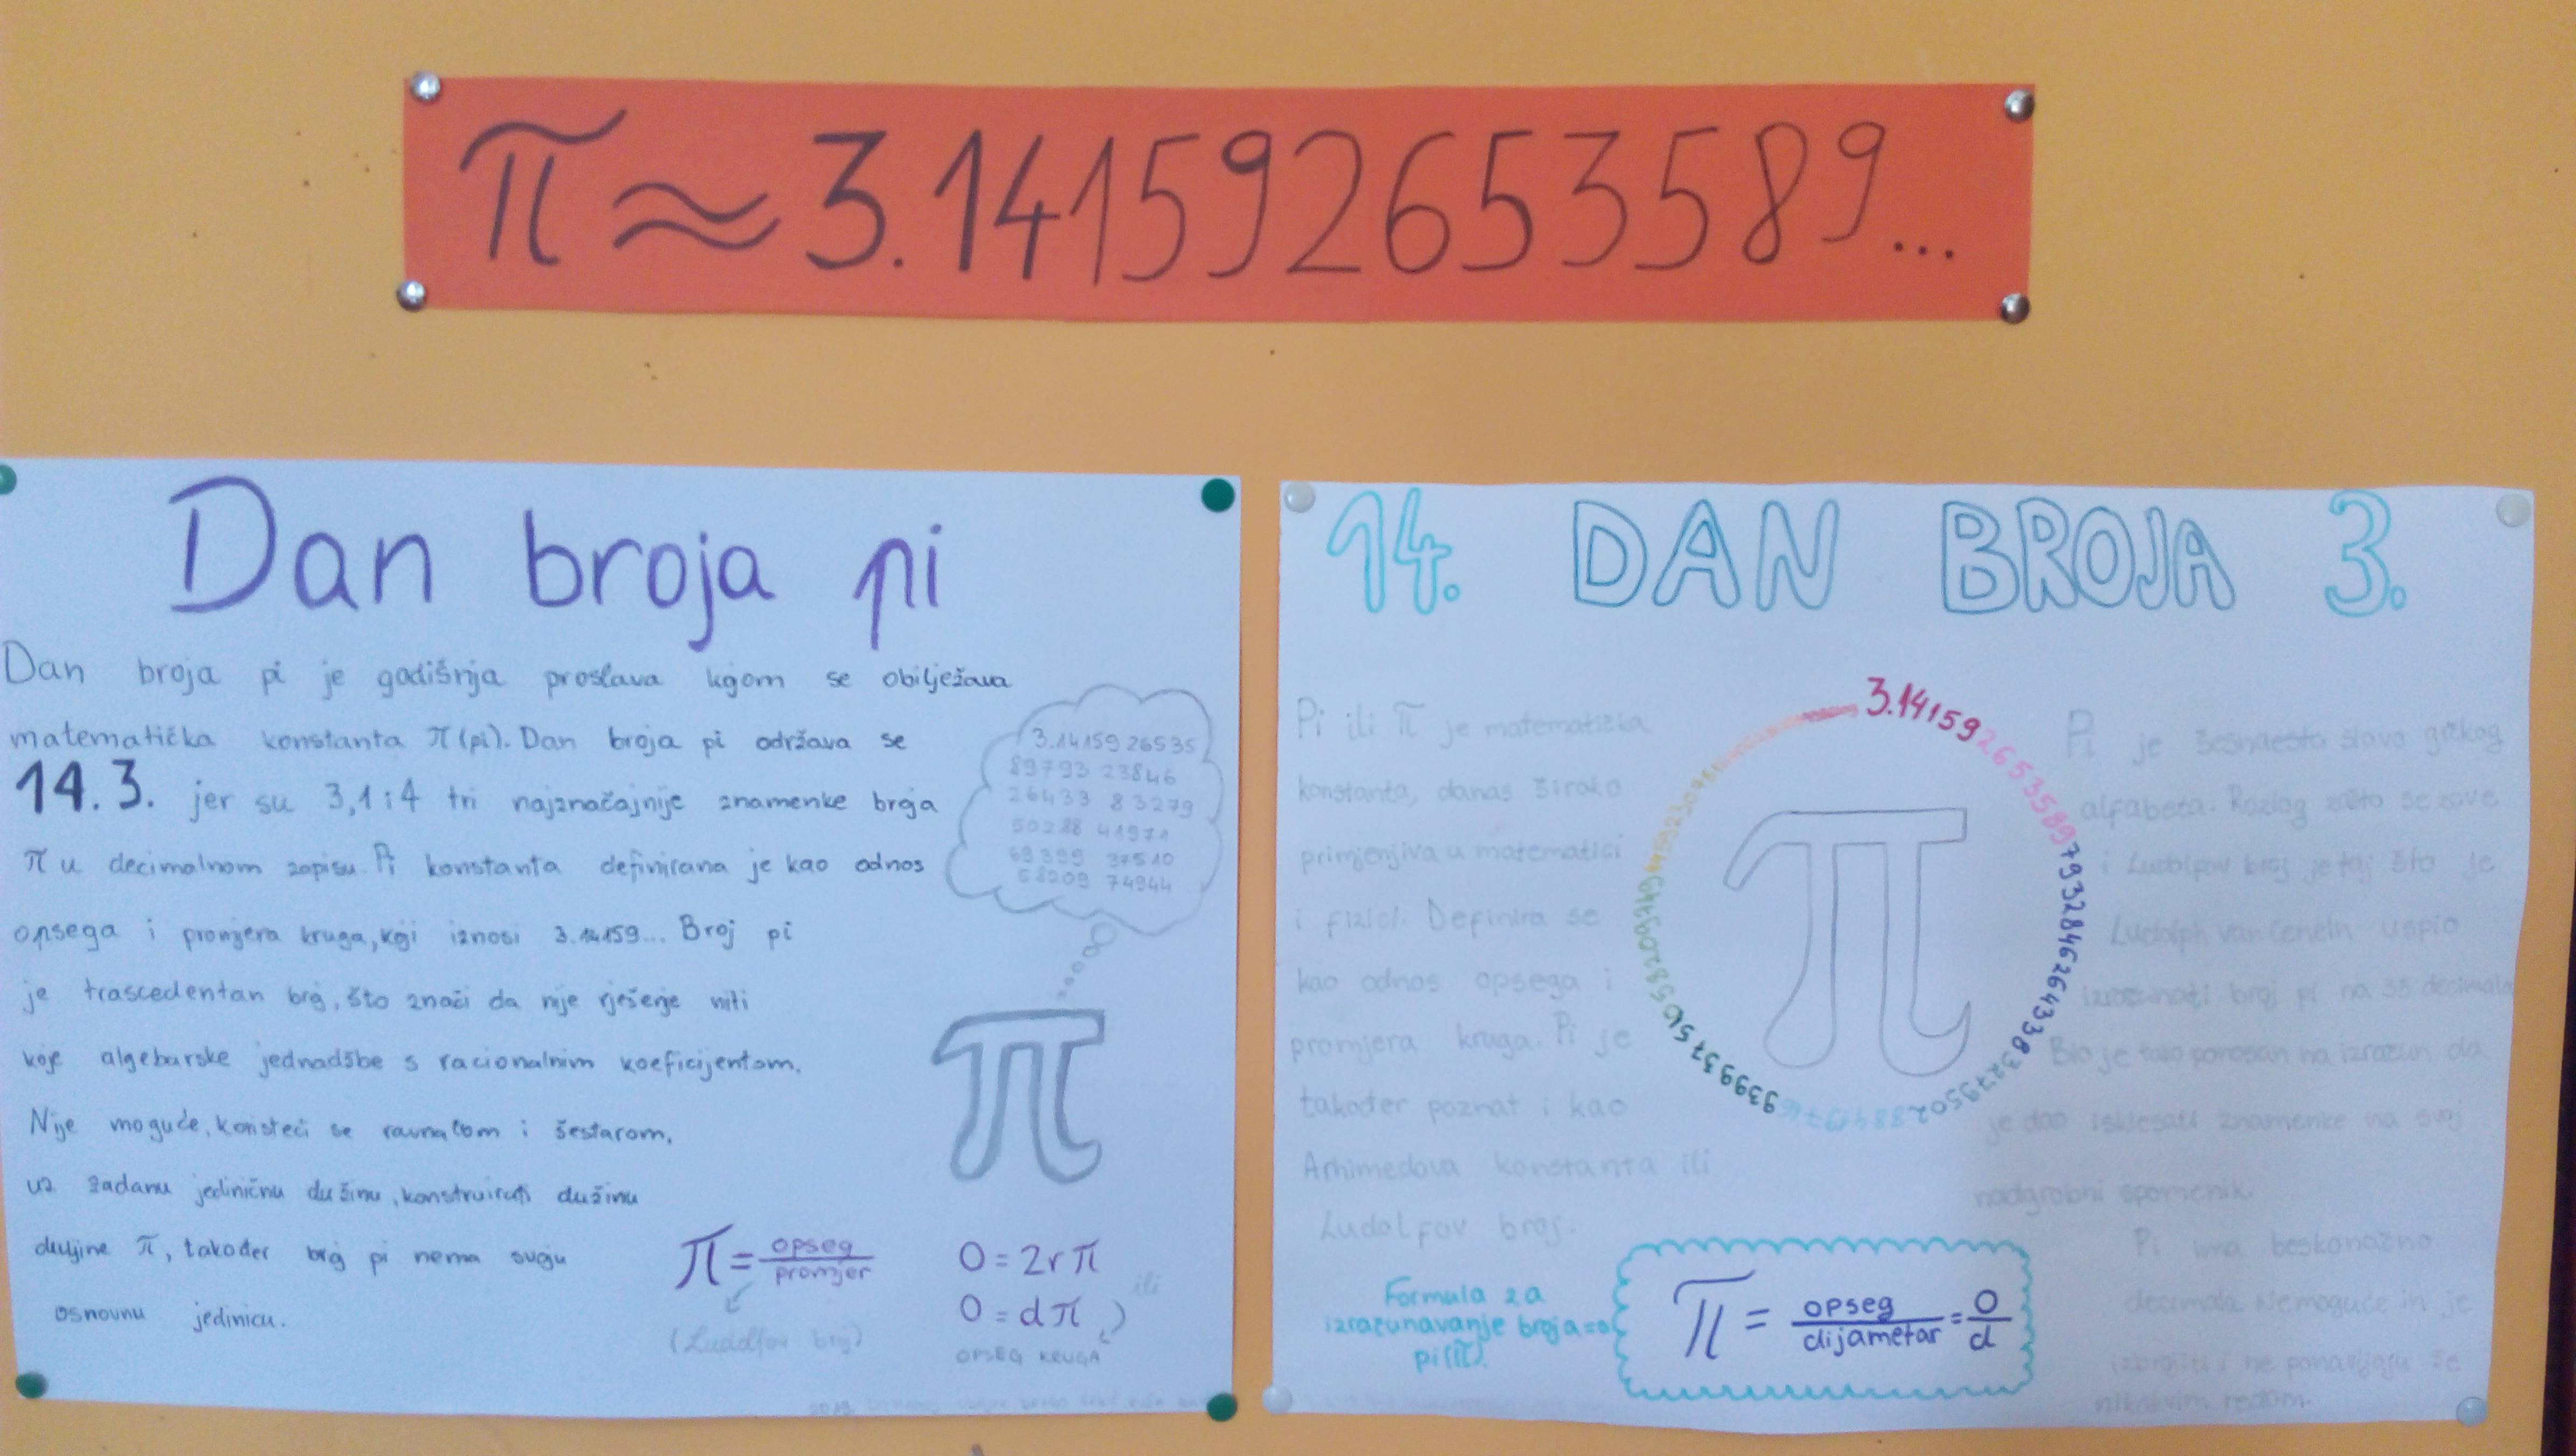 π ≈ 3.141592653589...
Dan broja pi
Dan broja pi je godišnja proslava kojom se obilježava
matematička konstanta π (pi). Dan broja pi održava se
14. 3. jer su 3, 1 i 4 tri najznačajnije znamenke broja
π u decimalnom zapisu. Pi konstanta definirana je kao odnos
opsega i promjera kruga, koji iznosi 3.14159... Broj pi
je trascedentan broj, što znači da nije rješenje niti
koje algebarske jednadžbe s racionalnim koeficijentom.
Nije moguće, koristeći se ravnalom i šestarom,
uz zadanu jediničnu dužinu, konstruirati dužinu
duljine π, također broj pi nema svoju
osnovnu jedinicu.
3.14159 26535
89793 23846
26433 83279
50288 41971
69399 37510
58209 74944
π
π = opseg / promjer
(Ludolfov broj)
O = 2rπ
ili
O = dπ
OPSEG KRUGA
14. DAN BROJA 3.
Pi ili π je matematička
konstanta, danas široko
primjenjiva u matematici
i fizici. Definira se
kao odnos opsega i
promjera kruga. Pi je
također poznat i kao
Arhimedova konstanta ili
Ludolfov broj.
3.14159265358979328462643383279502
π
Pi je šesnaesto slovo grčkog
alfabeta. Razlog zašto se zove
i Ludolfov broj je taj što je
Ludolph van uspio
izračunati broj pi na 35 decimala
Bio je tako ponosan na izračun da
je dao isklesati znamenke na svoj
nadgrobni spomenik.
Pi ima beskonačno
decimala. Nemoguće ih je
izbrojiti i ne ponavljaju se
nikakvim redom.
Formula za
izračunavanje broja
pi (π).
π = opseg / dijametar = O / d